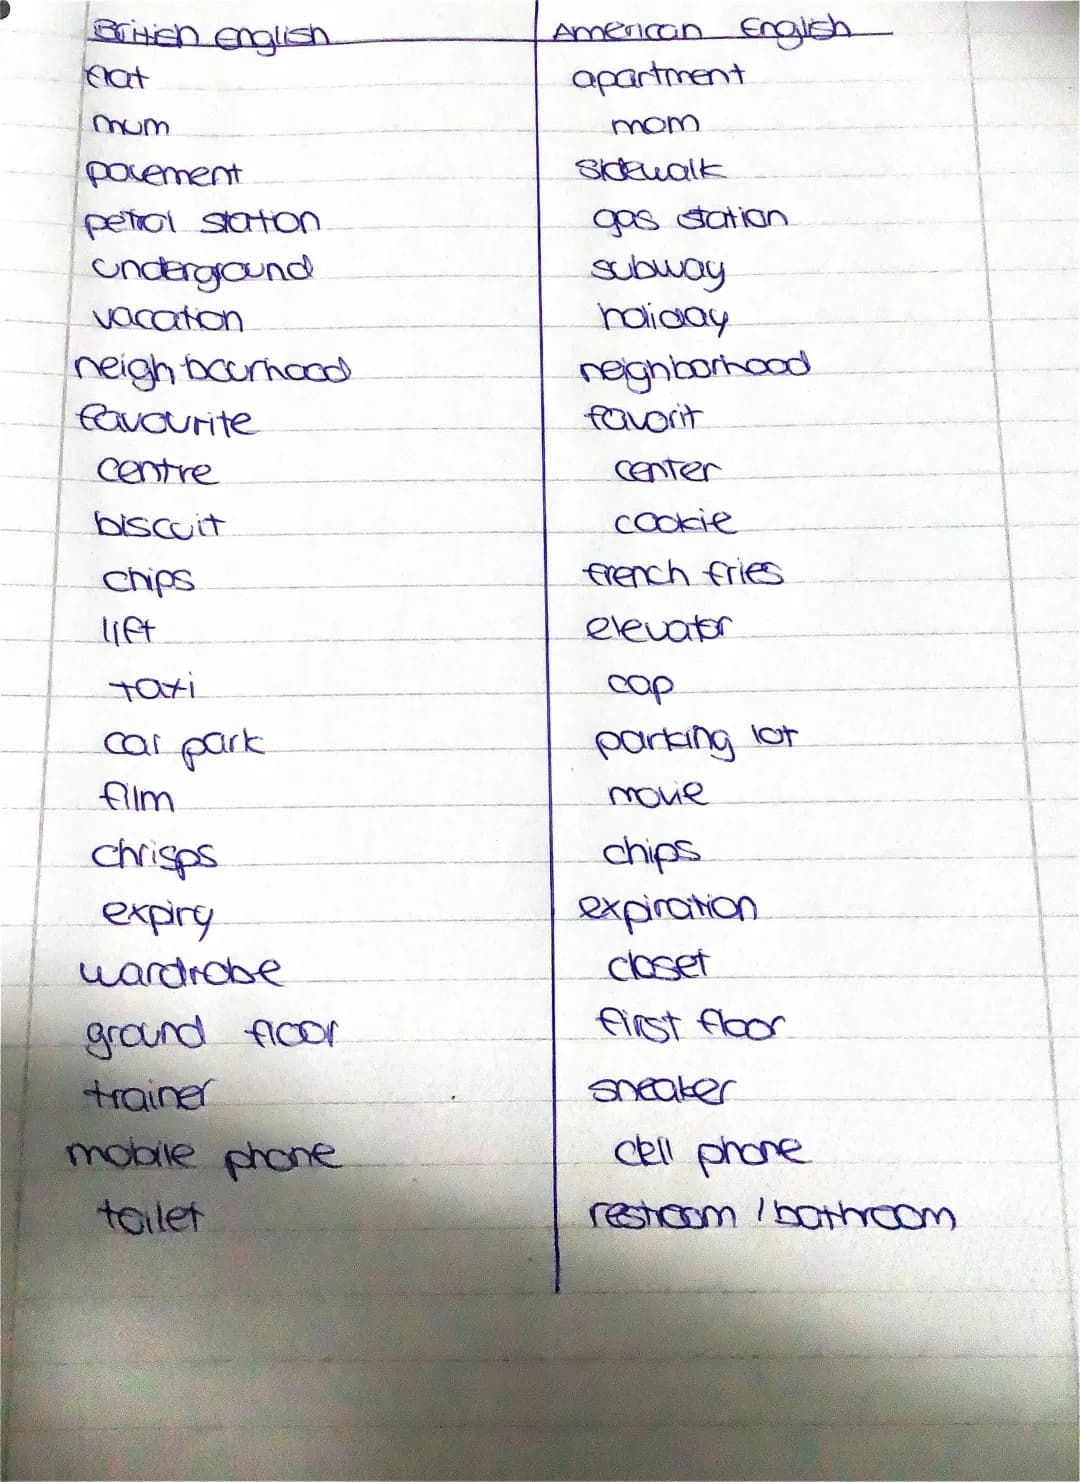 British english American English
flat apartment
mum mom
pavement sidewalk
petrol station gas station
underground subway
vacation holiday
neighbourhood neighborhood
favourite favorit
centre center
biscuit cookie
chips french fries
lift elevator
taxi cap
car park parking lot
film movie
chrisps chips
expiry expiration
wardrobe closet
ground floor first floor
trainer sneaker
mobile phone cell phone
toilet restroom / bathroom